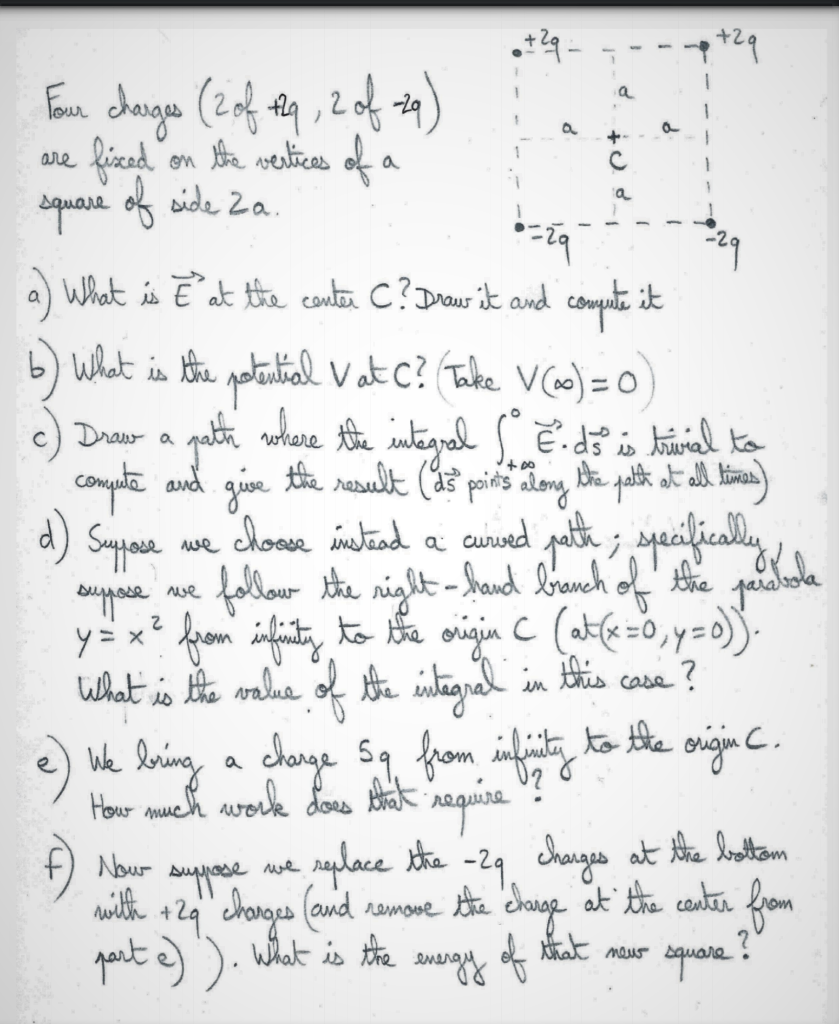 +2q +2q
Four charges (2 of +2q, 2 of -2q)
a
are fixed on the vertices of a
a + a
C
square of side 2a.
a
-2q -2q
a) What is E→ at the center C? Draw it and compute it
b) What is the potential V at C? (Take V(∞) = 0)
c) Draw a path where the integral ∫₊∞⁰ E→·ds→ is trivial to
compute and give the result (ds→ points along the path at all times)
d) Suppose we choose instead a curved path; specifically,
suppose we follow the right-hand branch of the parabola
y = x² from infinity to the origin C (at(x=0, y=0)).
What is the value of the integral in this case?
e) We bring a charge 5q from infinity to the origin C.
How much work does that require?
f) Now suppose we replace the -2q charges at the bottom
with +2q charges (and remove the charge at the center from
part e)). What is the energy of that new square?